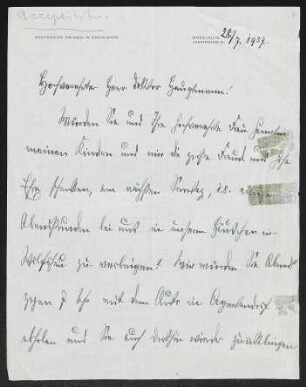 26/7. 1937
Hochverehrter Herr Doktor Hauptmann!
Würden Sie und Ihre hochverehrte Frau Gemahlin
meinen Kindern und mir die große Freude und hohe
Ehre schenken, am nächsten Sonntag, d.
Abendstunden bei uns in unserem Häuschen in
Wolfshau zu verbringen? Wir würden Sie Abends
gegen 7 Uhr mit dem Auto in Agnetendorf
abholen und Sie auch dorthin wieder zurückbringen